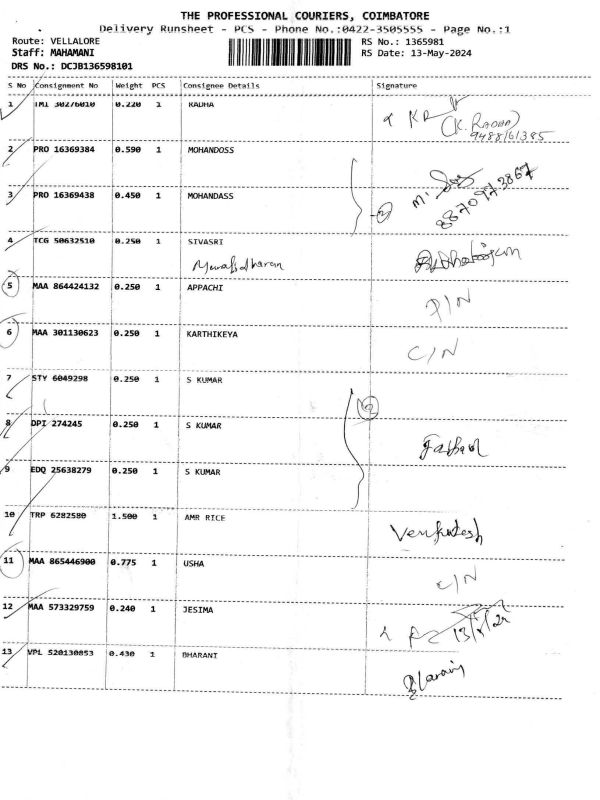 THE PROFESSIONAL COURIERS, COIMBATORE
Delivery Runsheet - PCS - Phone No.:0422-3505555 - Page No.:1
Route: VELLALORE RS No.: 1365981
Staff: MAHAMANI RS Date: 13-May-2024
DRS No.: DCJB136598101
S No Consignment No Weight PCS Consignee Details Signature
1 IMI 30276010 0.220 1 RADHA
(K. RADHA)
9488161385
2 PRO 16369384 0.590 1 MOHANDOSS
3 PRO 16369438 0.450 1 MOHANDASS
2
8870973867
4 TCG 50632510 0.250 1 SIVASRI
5 MAA 864424132 0.250 1 APPACHI
P/N
6 MAA 301130623 0.250 1 KARTHIKEYA
C/N
7 STY 6049298 0.250 1 S KUMAR
8 DPI 274245 0.250 1 S KUMAR
9 EDQ 25638279 0.250 1 S KUMAR
10 TRP 6282580 1.500 1 AMR RICE
Venkatesh
11 MAA 865446900 0.775 1 USHA
C/N
12 MAA 573329759 0.240 1 JESIMA
13/5/24
13 VPL 520130853 0.430 1 BHARANI
Bharani